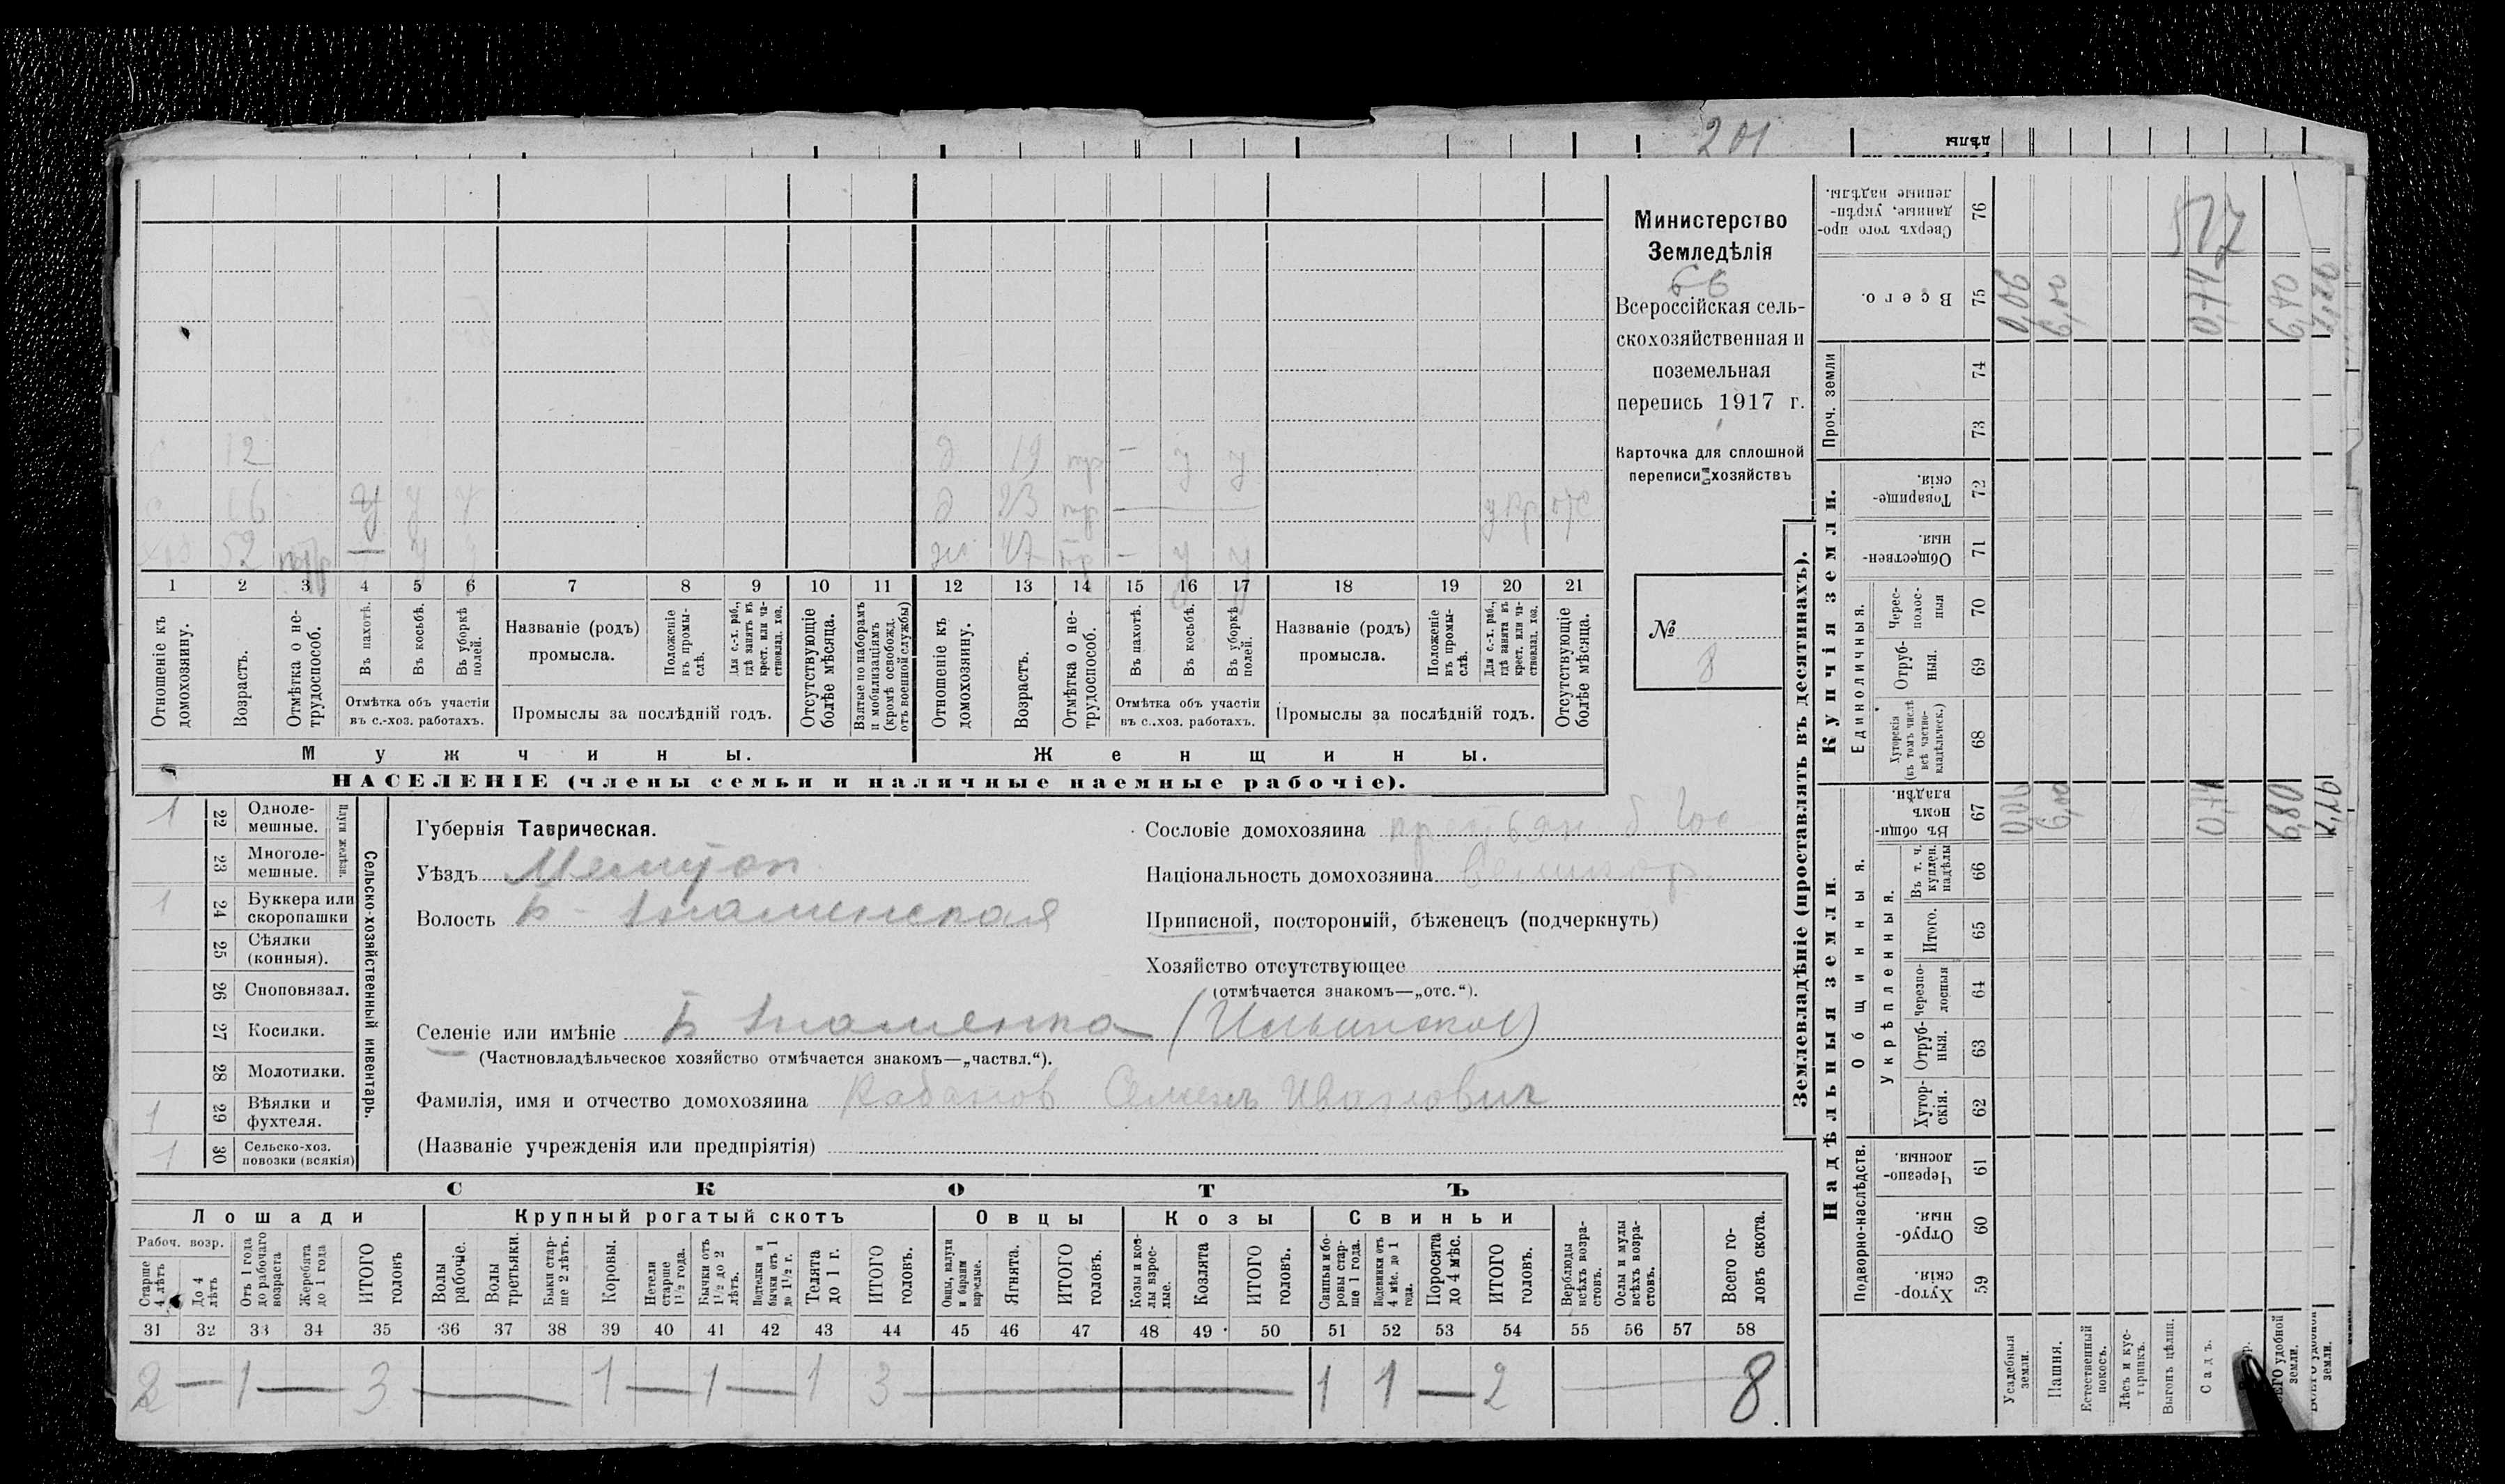 201
Министерство
Земледѣлія
66
Всероссійская сель-
скохозяйственная и
поземельная
перепись 1917 г.
Карточка для сплошной
переписи хозяйствъ
№
8
12 д 19 нр — у у
16 у у у д 23 нр
52 у ж 47 нр — у у
1 2 3 4 5 6 7 8 9 10 11 12 13 14 15 16 17 18 19 20 21
Отношеніе къ домохозяину.
Возрастъ.
Отмѣтка о не-трудоспособ.
Въ пахотѣ.
Въ косьбѣ.
Въ уборкѣ полей.
Отмѣтка объ участіи въ с.-хоз. работахъ.
Названіе (родъ) промысла.
Положеніе въ промы-слѣ.
Для с.-х. раб., гдѣ занятъ въ крест. или ча-стновлад. хоз.
Промыслы за послѣдній годъ.
Отсутствующіе болѣе мѣсяца.
Взятые по наборамъ и мобилизаціямъ (кромѣ освобожд. отъ военной службы)
Отношеніе къ домохозяину.
Возрастъ.
Отмѣтка о не-трудоспособ.
Въ пахотѣ.
Въ косьбѣ.
Въ уборкѣ полей.
Отмѣтка объ участіи въ с.-хоз. работахъ.
Названіе (родъ) промысла.
Положеніе въ промы-слѣ.
Для с.-х. раб., гдѣ занята въ крест. или ча-стновлад. хоз.
Промыслы за послѣдній годъ.
Отсутствующіе болѣе мѣсяца.
Мужчины. Женщины.
НАСЕЛЕНІЕ (члены семьи и наличные наемные рабочіе).
Сельско-хозяйственный инвентарь.
Плуги желѣзн.
1 22 Одноле-мешные.
23 Многоле-мешные.
1 24 Буккера или скоропашки
25 Сѣялки (конныя).
26 Сноповязал.
27 Косилки.
28 Молотилки.
1 29 Вѣялки и фухтеля.
1 30 Сельско-хоз. повозки (всякія)
Губернія Таврическая.
Уѣздъ Мелитоп
Волость Б-Знаменская
Сословіе домохозяина
Національность домохозяина великор.
Приписной, посторонній, бѣженецъ (подчеркнуть)
Хозяйство отсутствующее
(отмѣчается знакомъ—„отс.“).
Селеніе или имѣніе Б Знаменка (Ильинское)
(Частновладѣльческое хозяйство отмѣчается знакомъ—„частвл.“).
Фамилія, имя и отчество домохозяина Кабанов Семенъ Иванович
(Названіе учрежденія или предпріятія)
СКОТЪ
Лошади Крупный рогатый скотъ Овцы Козы Свиньи
Рабоч. возр.
Старше 4 лѣтъ
До 4 лѣтъ
Отъ 1 года до рабочаго возраста
Жеребята до 1 года
ИТОГО головъ
Волы рабочіе.
Волы третьяки.
Быки стар-ше 2 лѣтъ.
Коровы.
Нетели старше 1½ года.
Бычки отъ 1½ до 2 лѣтъ.
Подтелки и бычки отъ 1 до 1½ г.
Телята до 1 г.
ИТОГО головъ.
Овцы, валухи и бараны взрослые.
Ягнята.
ИТОГО головъ.
Козы и коз-лы взрос-лые.
Козлята
ИТОГО головъ.
Свиньи и бо-ровы стар-ше 1 года.
Подсвинки отъ 4 мѣс. до 1 года.
Поросята до 4 мѣс.
ИТОГО головъ.
Верблюды всѣхъ возра-стовъ.
Ослы и мулы всѣхъ возра-стовъ.
Всего го-ловъ скота.
31 32 33 34 35 36 37 38 39 40 41 42 43 44 45 46 47 48 49 50 51 52 53 54 55 56 57 58
2 — 1 — 3 — 1 — 1 — 1 3 — 1 1 — 2 — 8
Землевладѣніе (проставлять въ десятинахъ).
Надѣльныя земли. Купчія земли. Проч. земли
Подворно-наслѣдств. Общинныя. Укрѣпленныя. Единоличныя.
Сверхъ того про-данные, укрѣп-ленные надѣлы. 76 517
Всего. 75 0,06 6,00 0,74 6,80
74
73
Товарище-скія. 72
Обществен-ныя. 71
Черес-полос-ныя 70
Отруб-ныя. 69
Хуторскія (въ томъ числѣ всѣ частно-владѣльческ.) 68
Въ общи-номъ владѣн. 67 6,00 6,80
Въ т. ч. куплен. надѣлы 66
Итого. 65
Черезпо-лосныя 64
Отруб-ныя. 63
Хутор-скія. 62
Черезпо-лосныя. 61
Отруб-ныя. 60
Хутор-скія. 59
Усадебныя земли.
Пашня.
Естественный покосъ.
Лѣсъ и кус-тарникъ.
Выгонъ цѣлин.
Садъ.
удобной земли.
земли.